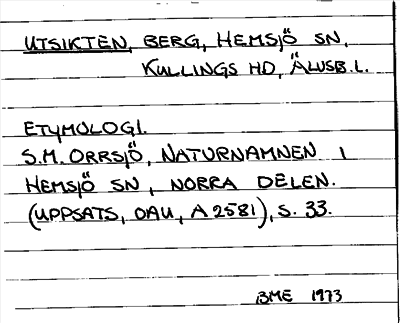 UTSIKTEN, BERG, HEMSJÖ SN,
KULLINGS HD, ÄLVSB. L.
ETYMOLOGI.
S.M. ORRSJÖ, NATURNAMNEN I
HEMSJÖ SN, NORRA DELEN.
(UPPSATS, OAU, A 2581), S. 33.
BME 1973